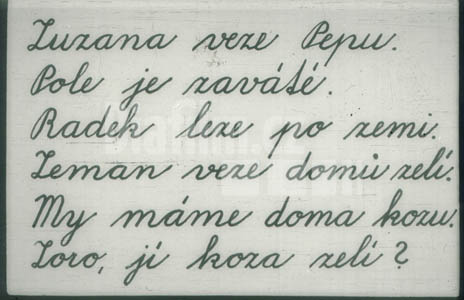 Zuzana veze Pepu.
Pole je zaváté.
Radek leze po zemi.
Zeman veze domů zelí.
My máme doma kozu.
Zoro, jí koza zelí?